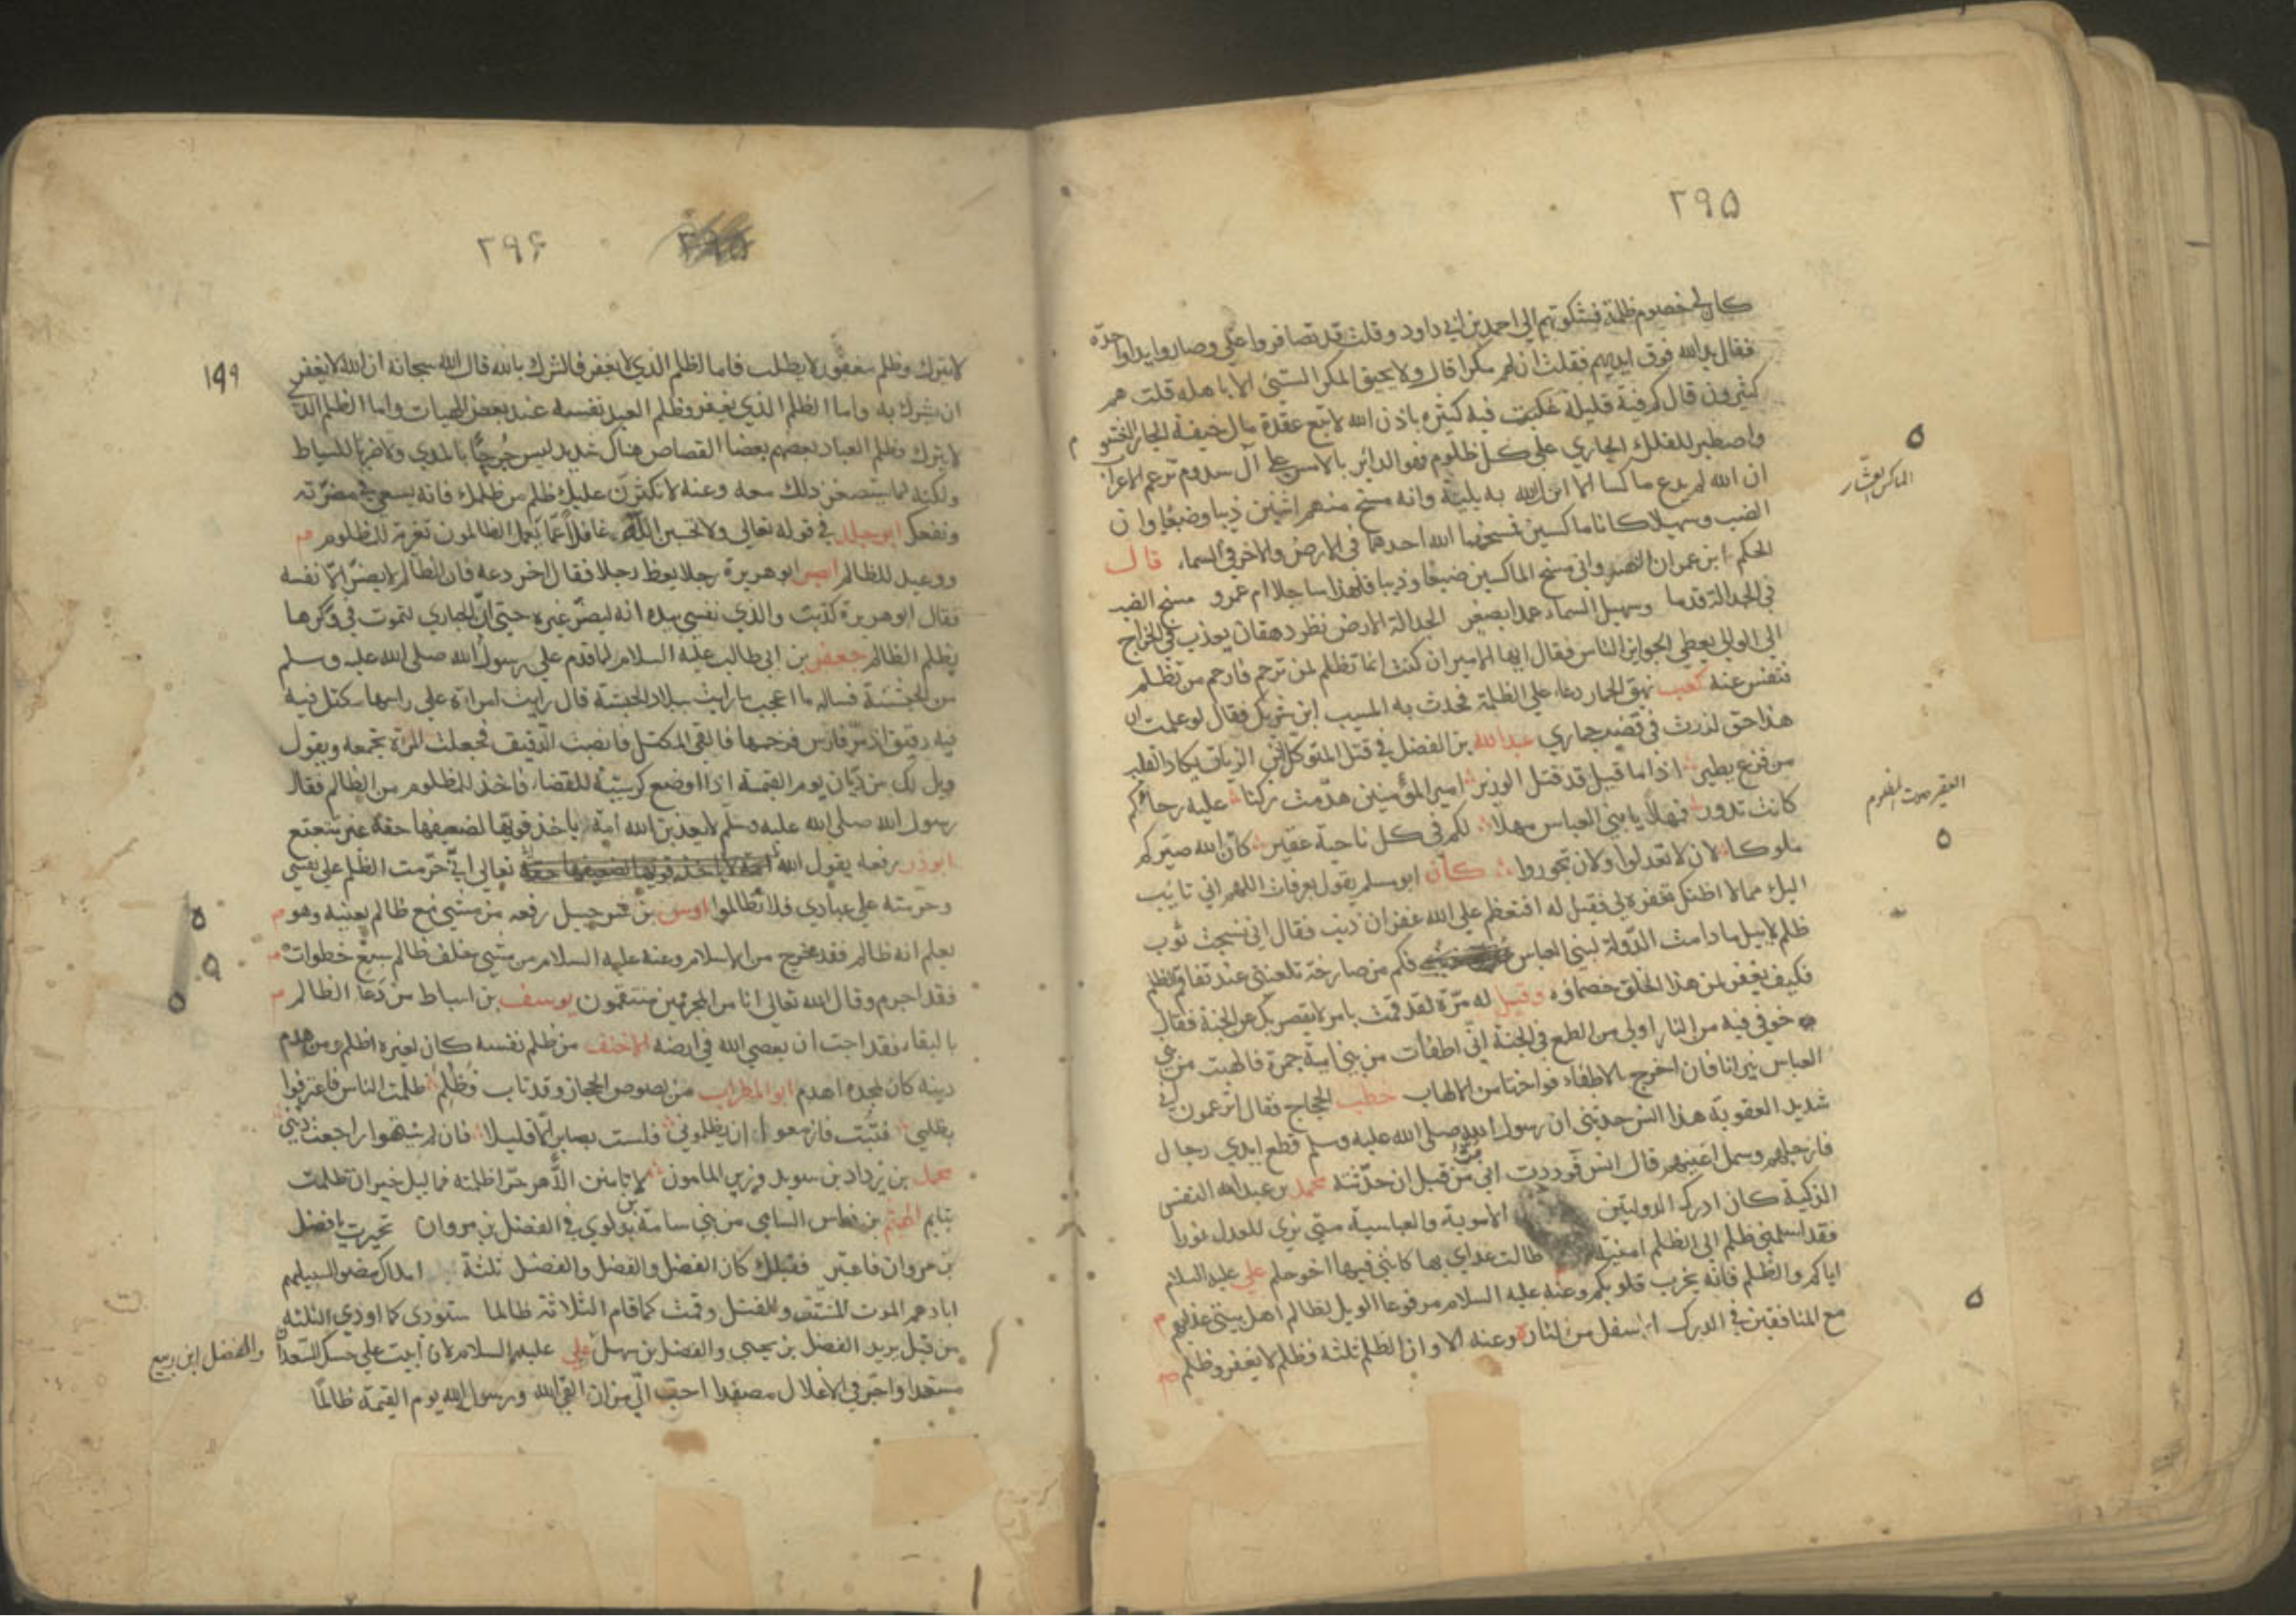 ٢٩٥
كان لي خصوم ظلمة فشكوتهم الي احمد بن ابي داود وقلت قد تضافروا علي وصاروا يدا واحدة
فقال يد الله فوق ايديهم فقلت ان لهم مكرا قال ولا يحيق المكر السيئ الا باهله قلت هم
كثيرون قال كم فئة قليلة غلبت فئة كثيرة باذن الله لا تبع عقدة مال خيفة الجار الغشوم
واصطبر للفلك الجاري علي كل ظلوم فهو الدائر بالامس علي آل سدوم تزعم الاعراب
ان الله لم يدع ماكسا الا انزل الله به بلية وانه مسخ منهم اثنين ذيبا وضبعا وان
الضب وسهيلا كانا ماكسين فمسخهما الله احدهما في الارض والاخر في السماء قال
الحكم ابن عمران مسخ الماكسين ضبعا وذيبا فلهذا ساجلا ام عمرو مسخ الضب
في الجدالة قدما وسهيل السماء عمدا بصغر الجدالة الارض نظر دهقان يعذب في الخراج
الي الوالي يعطي الجوايز الناس فقال ايها الامير ان كنت انما تظلم لمن ترحم فارحم من تظلم
فنفس عنه كعب نهق الحمار دعاء علي الظلمة فحدث به المسيب ابن شريك فقال لو علمت ان
هذا حق لزدت في قضيم حماري عبد الله بن الفضل في قتل المتوكل ابن الزيات يكاد القلب
من فزع يطير اذا ما قيل قد قتل الوزير امير المؤمنين هدمت ركنا عليه رحاءكم
كانت تدور فمهلا يا بني العباس مهلا لكم في كل ناحية عقير كان الله صيركم
ملوكا لان لا تعدلوا ولان تجوروا كان ابو مسلم يقول بعرفات اللهم اني تايب
اليك مما لا اظنك تغفره لي فقيل له افتعظم علي الله غفران ذنب فقال اني نسجت ثوب
ظلم لا يبلي ما دامت الدولة لبني العباس فكم من صارخة تلعنني عند تفاقم الظلم
فكيف يغفر لمن هذا الخلق خصماؤه وقيل له مرة لقد قمت بامر لا يقصر بك عن الجنة فقال
خوفي فيه من النار اولي من الطمع في الجنة اني اطفأت من بني امية جمرة فالهبت من بني
العباس نيرانا فان افرح بالاطفاء فواحزنا من الالهاب خطب الحجاج فقال اتزعمون اني
شديد العقوبة هذا انس حدثني ان رسول الله صلي الله عليه وسلم قطع ايدي رجال
وارجلهم وسمل اعينهم قال انس فوددت اني مت من قبل ان حدثته محمد بن عبد الله النفس
الزكية كان ادرك الدولتين الاموية والعباسية متي نري للعدل نورا
فقد اسلمني ظلم الي الظلم امنية طالت عداي بها كانني فيها اخو حلم علي عليه السلام
اياكم والظلم فانه يخرب قلوبكم وعنه عليه السلام مرفوعا الويل لظالم اهل بيتي عذابهم
مع المنافقين في الدرك الاسفل من النار وعنه الا وان الظلم ثلثة فظلم لا يغفر وظلم
الماكس العشار
العقير صوت المظلوم
٢٩٦
١٤٩
لا يترك وظلم مغفور لا يطلب فاما الظلم الذي لا يغفر فالشرك بالله قال الله سبحانه ان الله لا يغفر
ان يشرك به واما الظلم الذي يغفر فظلم العبد نفسه عند بعض الهنات واما الظلم الذي
لا يترك فظلم العباد بعضهم بعضا القصاص هناك شديد ليس جرحا بالمدي ولا ضربا بالسياط
ولكنه ما يستصغر ذلك معه وعنه لا يكثرن عليك ظلم من ظلمك فانه يسعي في مضرته
ونفعك ابو مجلز في قوله تعالي ولا تحسبن الله غافلا عما يعمل الظالمون تعزية للمظلوم
ووعيد للظالم ابو هريرة رجلا يعظ رجلا فقال اخر دعه فان الظالم لا يضر الا نفسه
فقال ابو هريرة كذبت والذي نفسي بيده انه ليضر غيره حتي ان الحباري لتموت في وكرها
بظلم الظالم جعفر بن ابي طالب عليه السلام لما قدم علي رسول الله صلي الله عليه وسلم
من الحبشة فساله ما اعجب ما رايت ببلاد الحبشة قال رايت امراة علي راسها مكتل فيه
فيه دقيق اذ مر فارس فزحمها فالقي المكتل فانصب الدقيق فجعلت المرأة تجمعه ويقول
ويل لك من ديان يوم القيمة اذا اوضع كرسيه للقضاء فاخذ للمظلوم من الظالم فقال
رسول الله صلي الله عليه وسلم لا يعذبن الله امة ياخذ قويها لضعيفها حقه غير متعتع
ابوذر رفعه يقول الله تعالي اني حرمت الظلم علي نفسي
وحرمته علي عبادي فلا تظالموا اوس بن شرحبيل رفعه من مشي مع ظالم يعينه وهو
يعلم انه ظالم فقد خرج من الاسلام وعنه عليه السلام من مشي خلف ظالم سبع خطوات
فقد اجرم وقال الله تعالي انا من المجرمين منتقمون يوسف بن اسباط من دعا الظالم
بالبقاء فقد احب ان يعصي الله في ارضه الاحنف من ظلم نفسه كان لغيره اظلم ومن هدم
دينه كان لمجده اهدم ابو المطراب من لصوص الحجاز وقد تاب فظلم ظلمت الناس فاعترفوا
بظلمي فتبت فازمعوا ان يظلموني فلست بصابر الا قليلا فان لم ينتهوا راجعت ديني
محمد بن يزداد بن سويد وزير المامون لا تامنن الدهر حرا ظلمته فما ليل حر ان ظلمت
بنايم الهيثم بن فراس السامي من بني سامة بن لوي في الفضل بن مروان تجبرت يا فضل
بن مروان فاعتبر فقبلك كان الفضل والفضل والفضل ثلثة املاك مضوا لسبيلهم
ابادهم الموت المشتت والقتل وقمت كما قام الثلاثة ظالما ستودي كما اودي الثلثة
من قبل يريد الفضل بن يحيي والفضل بن سهل علي عليه السلام لان ابيت علي حسك السعدان
والفضل ابن ربيع
مسهدا واجر في الاغلال مصفدا احب الي من ان القي الله ورسول الله يوم القيمة ظالما